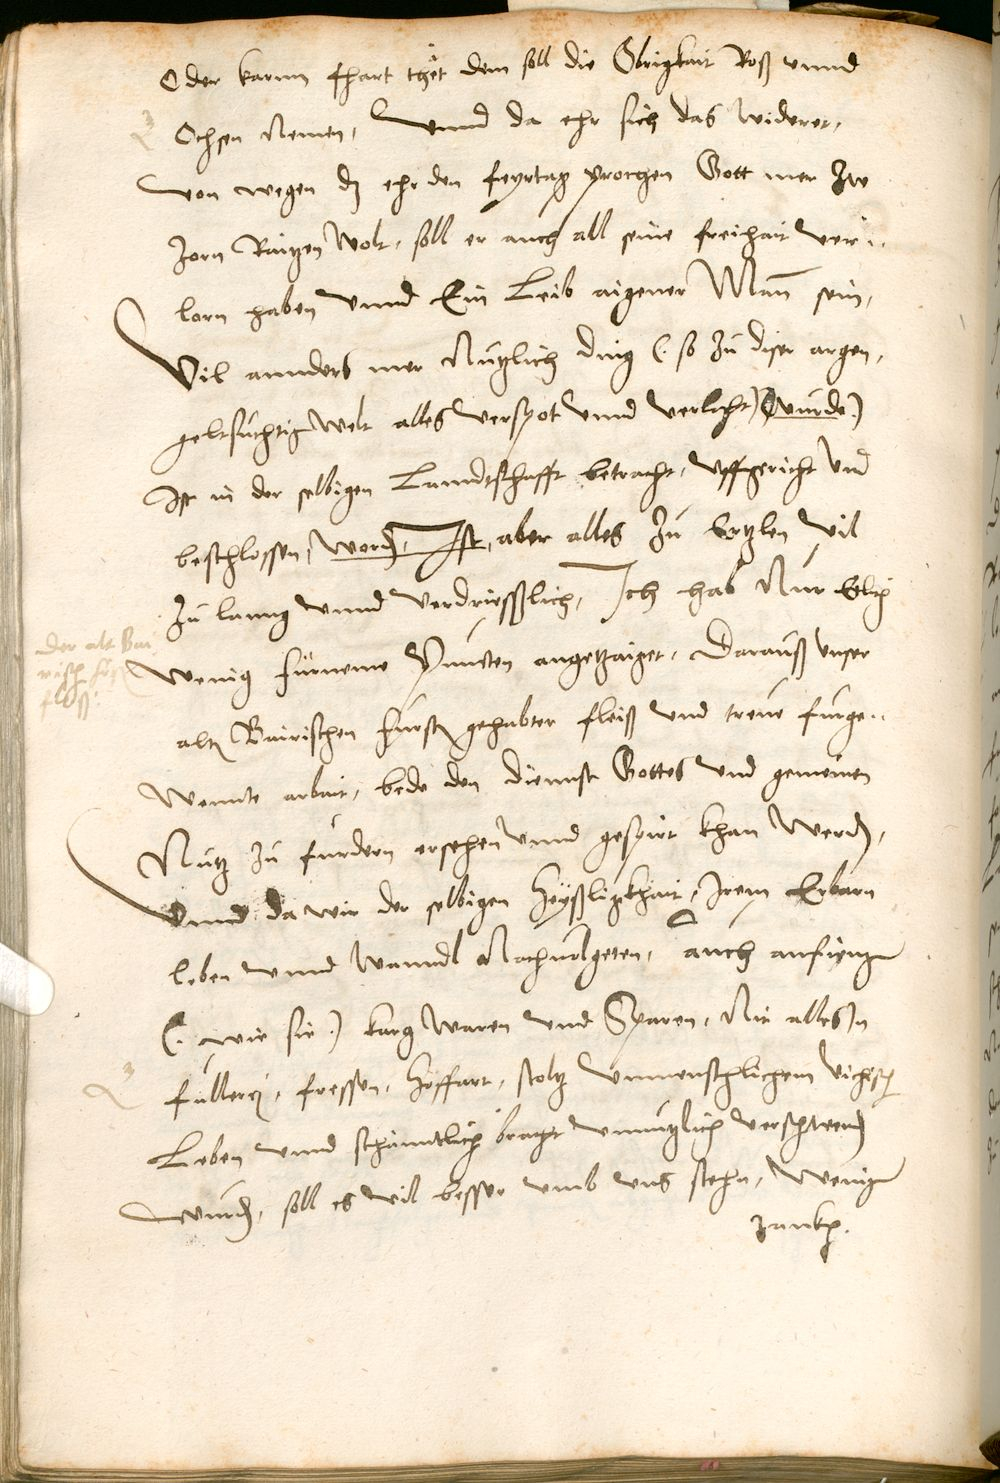 Oder karnn fhart thet dem soll die Obrigkait Roß vnnd
Ochsen Nemen, Vnnd da ehr sich das widerer,
von wegen dz ehr den feyrtag prochen Gott mer Zw
Zorn Raitzen Wolt, soll er auch all seine freihait ver..
lorn haben vnnd Ein Leib aigener Man sein,
Vil annders mer Nützlich ding (. so zu diser argen,
geltsüchtig Welt alles verspot vnnd verlacht) würde.)
Ist in der selbigen Lanndtschafft betracht, Vffgericht vnd
beschlossen, word, Ist, aber alles Zu Ertzlen vil
Zu lanng vnnd verdriesslich, Ich hab Nur etlich
wenig fürneme Puncten angetzaiget, Darauß vnser
alt Bairischen fürst gehabter fleiß vnd treue fürge..
Wennte arbait, bede den dienst Gottes vnd gemeinen
Nutz zu furdern ersehen vnnd gespürt khan werd,
Vnnd da wir der selbigen heyßligkhait, Irem Erbarn
leben vnnd Wanndl Nachuolgeten, auch anfieng
(. wie sie .) karg Waren vnd Sparen, Nit alles In
füllerei, fressen, Hoffart, stoltz vnmenschlichem vichisch
Leben vnnd schanntlich bracht vnnützlich verschwend
würd, soll es vil besser vmb vns stehn, Wenig
Zankh.
Der alt Bai
risch für
fleiß